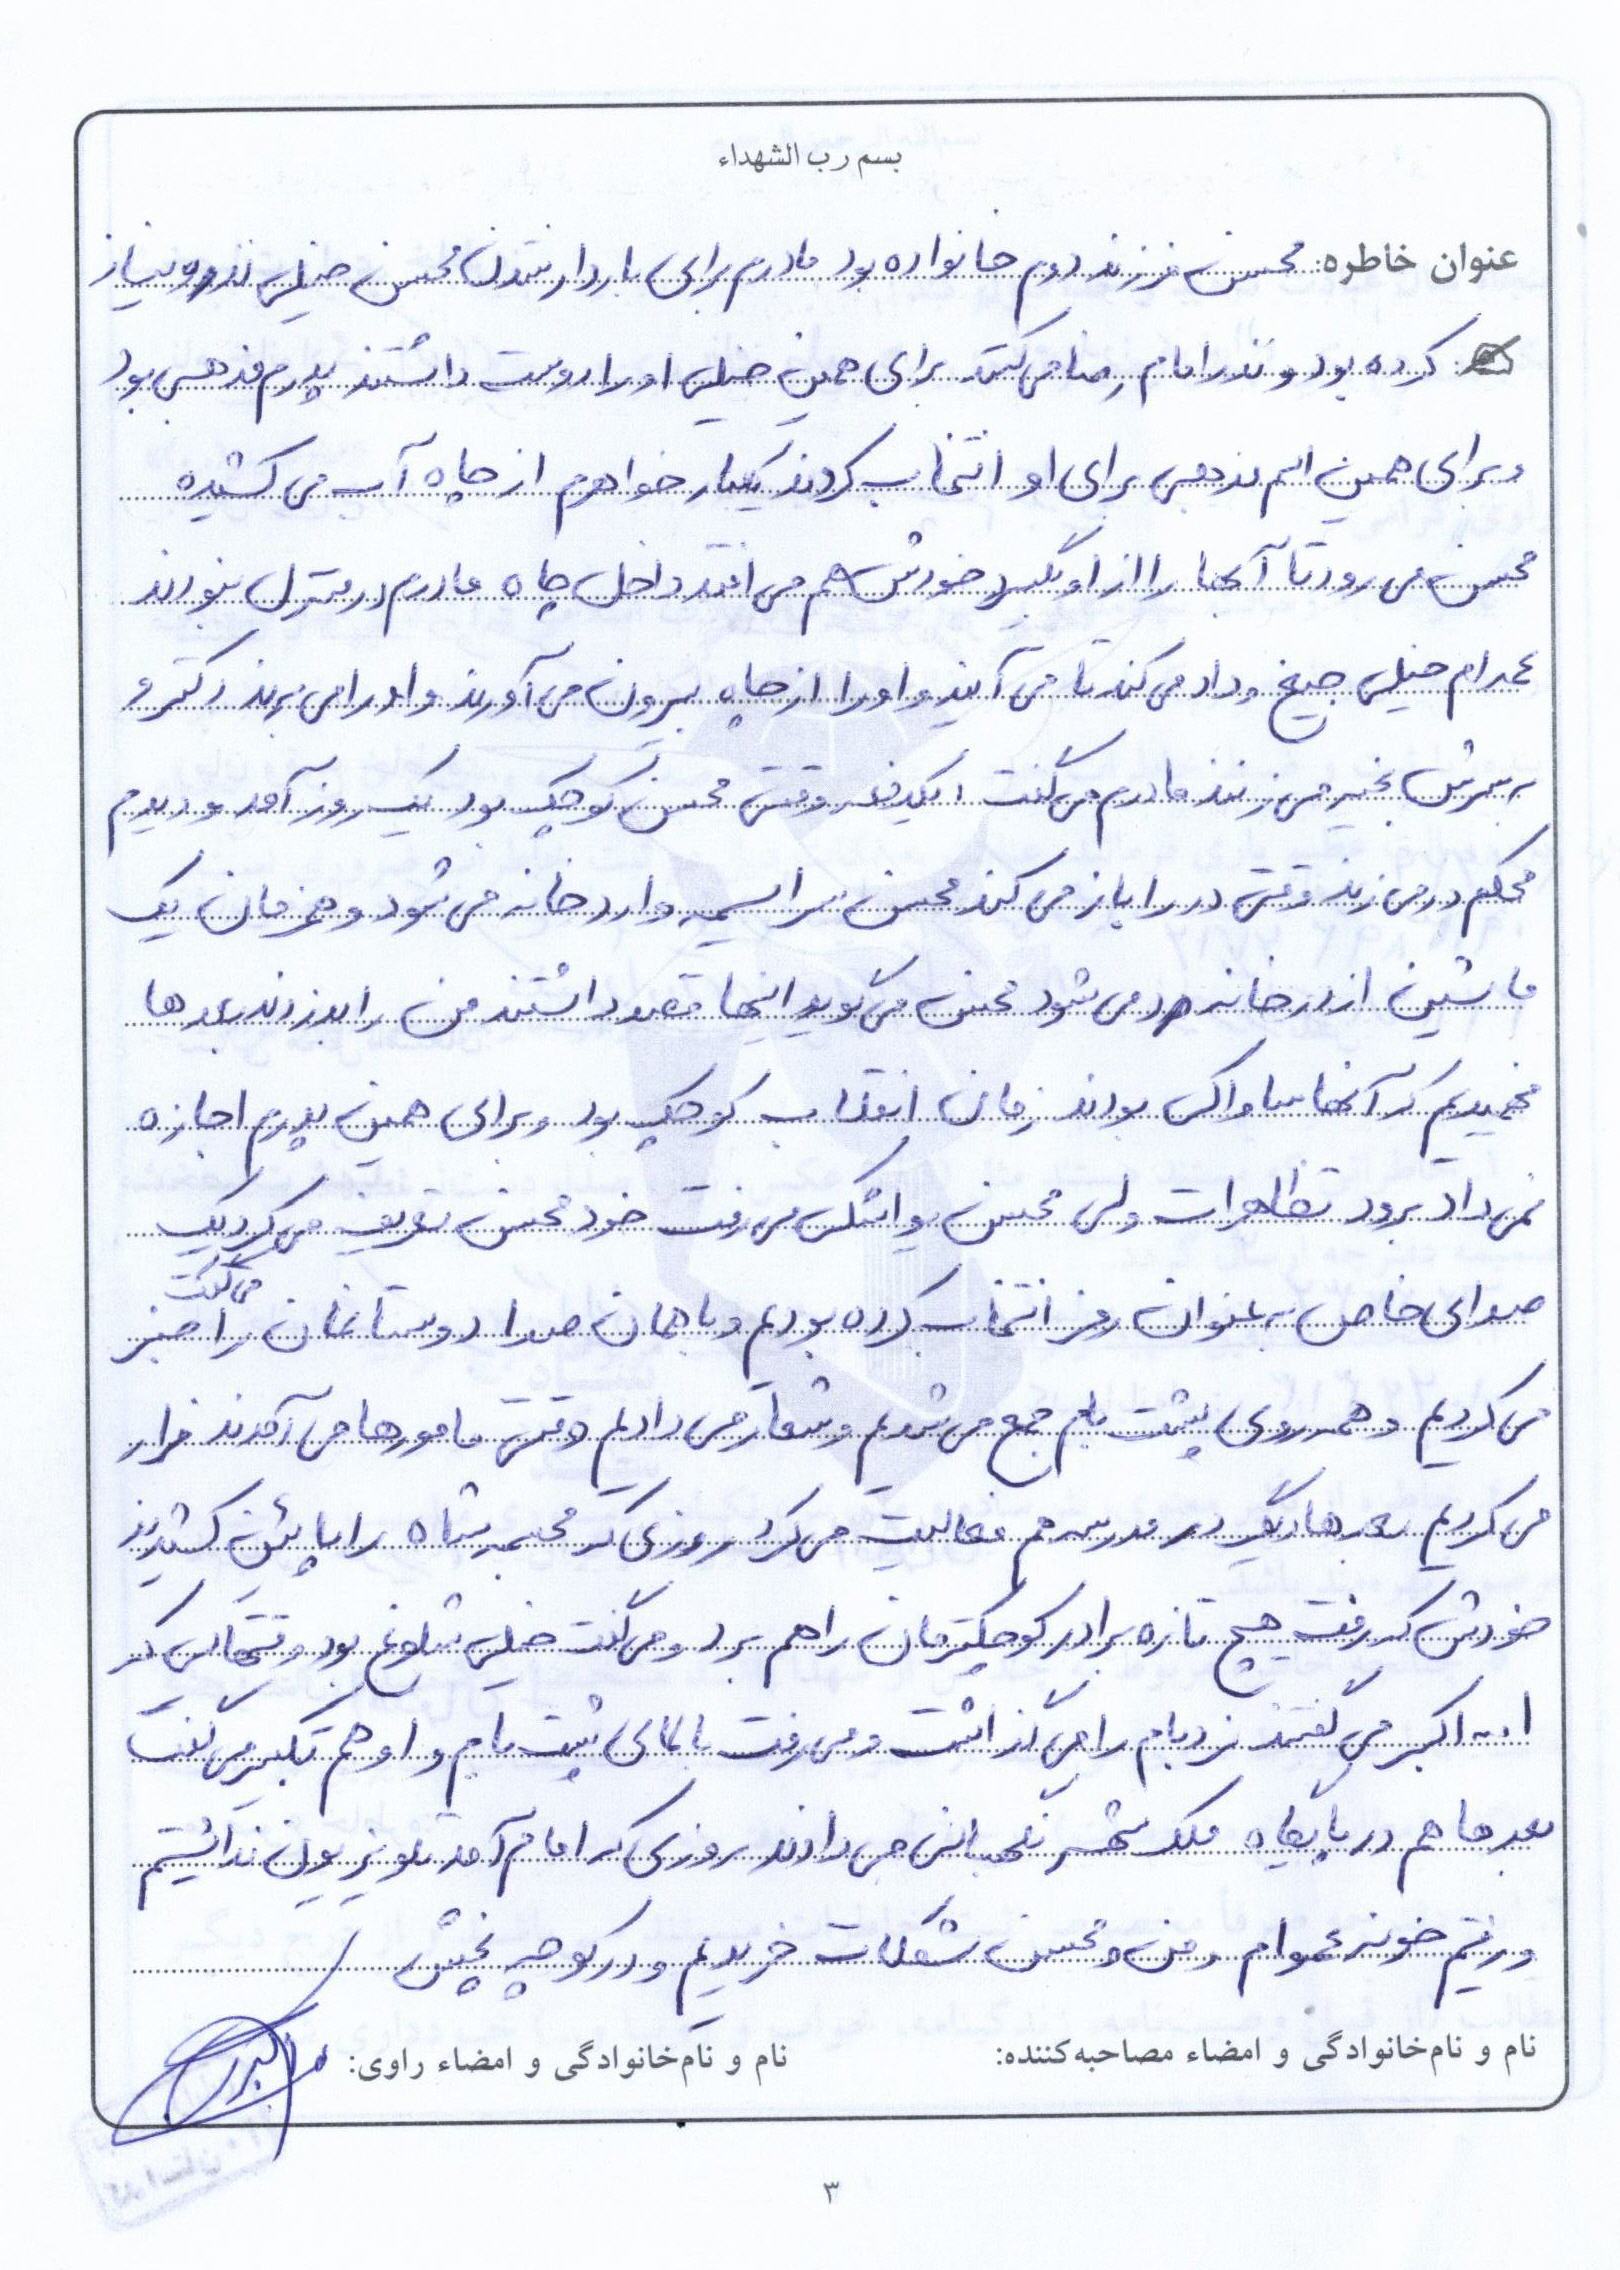 بسم رب الشهداء
عنوان خاطره: محسن فرزند دوم خانواده بود مادرم برای باردار شدن محسن خیلی نذر و نیاز
کرده بود و نذر امام رضا می کند برای همین خیلی او را دوست داشتند پدرم مذهبی بود
و برای همین اسم مذهبی برای او انتخاب کردند یکبار خواهرم از چاه آب می کشیده
محسن می رود تا آنجا را از او بگیرد خودش هم می افتد داخل چاه مادرم در منزل نبودند
عمه ام خیلی جیغ و داد می کند تا می آیند و او را از چاه بیرون می آورند و او را می برند دکتر و
بر سرش بخیه می زنند مادرم می گفت یکدفعه وقتی محسن کوچک بود یک روز آمد و دیدم
محکم در می زند وقتی در را باز می کند محسن سراسیمه وارد خانه می شود و همزمان یک
ماشین از در خانه رد می شود محسن می گوید اینها قصد داشتند من را بدزدند بعدها
فهمیدیم که آنها ساواکی بودند زمان انقلاب کوچک بود و برای همین پدرم اجازه
نمی داد برود تظاهرات ولی محسن یواشکی می رفت خود محسن تعریف می کرد یک
می گفت
صدای خاص به عنوان رمز انتخاب کرده بودیم و با همان صدا دوستانمان را خبر
می کردیم و همه روی پشت بام جمع می شدیم و شعار می دادیم وقتی مامورها می آمدند فرار
می کردیم بعدها دیگر در مدرسه هم فعالیت می کرد روزی که مجسمه شاه را پائین کشیدند
خودش که رفت هیچ تازه برادر کوچکترمان را هم برد و می گفت خیلی شلوغ بود وقتهایی که
الله اکبر می گفتند نردبام را می گذاشت و می رفت بالای پشت بام و او هم تکبیر می گفت
بعدها هم در پایگاه ملک شهر نگهبانی می دادند روزی که امام آمد تلویزیون نداشتیم
و رفتیم خونه عموام و من و محسن شکلات خریدیم و در کوچه پخش
نام و نام‌خانوادگی و امضاء مصاحبه‌کننده:
نام و نام‌خانوادگی و امضاء راوی:
۳